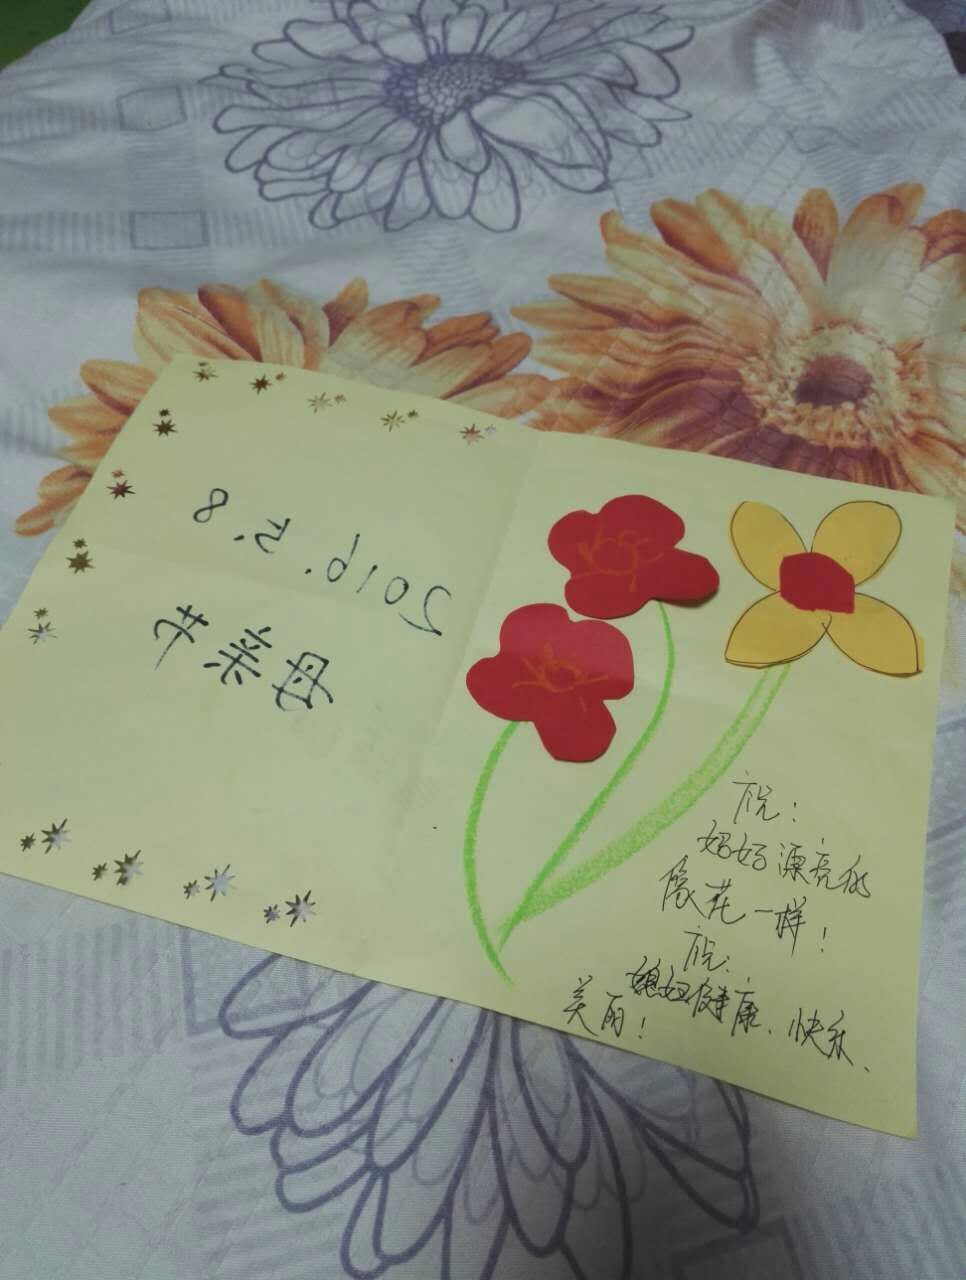 母亲节
2016.5.8
祝:
妈妈漂亮的
像花一样!
祝:
媳妇健康、快乐、
美丽!